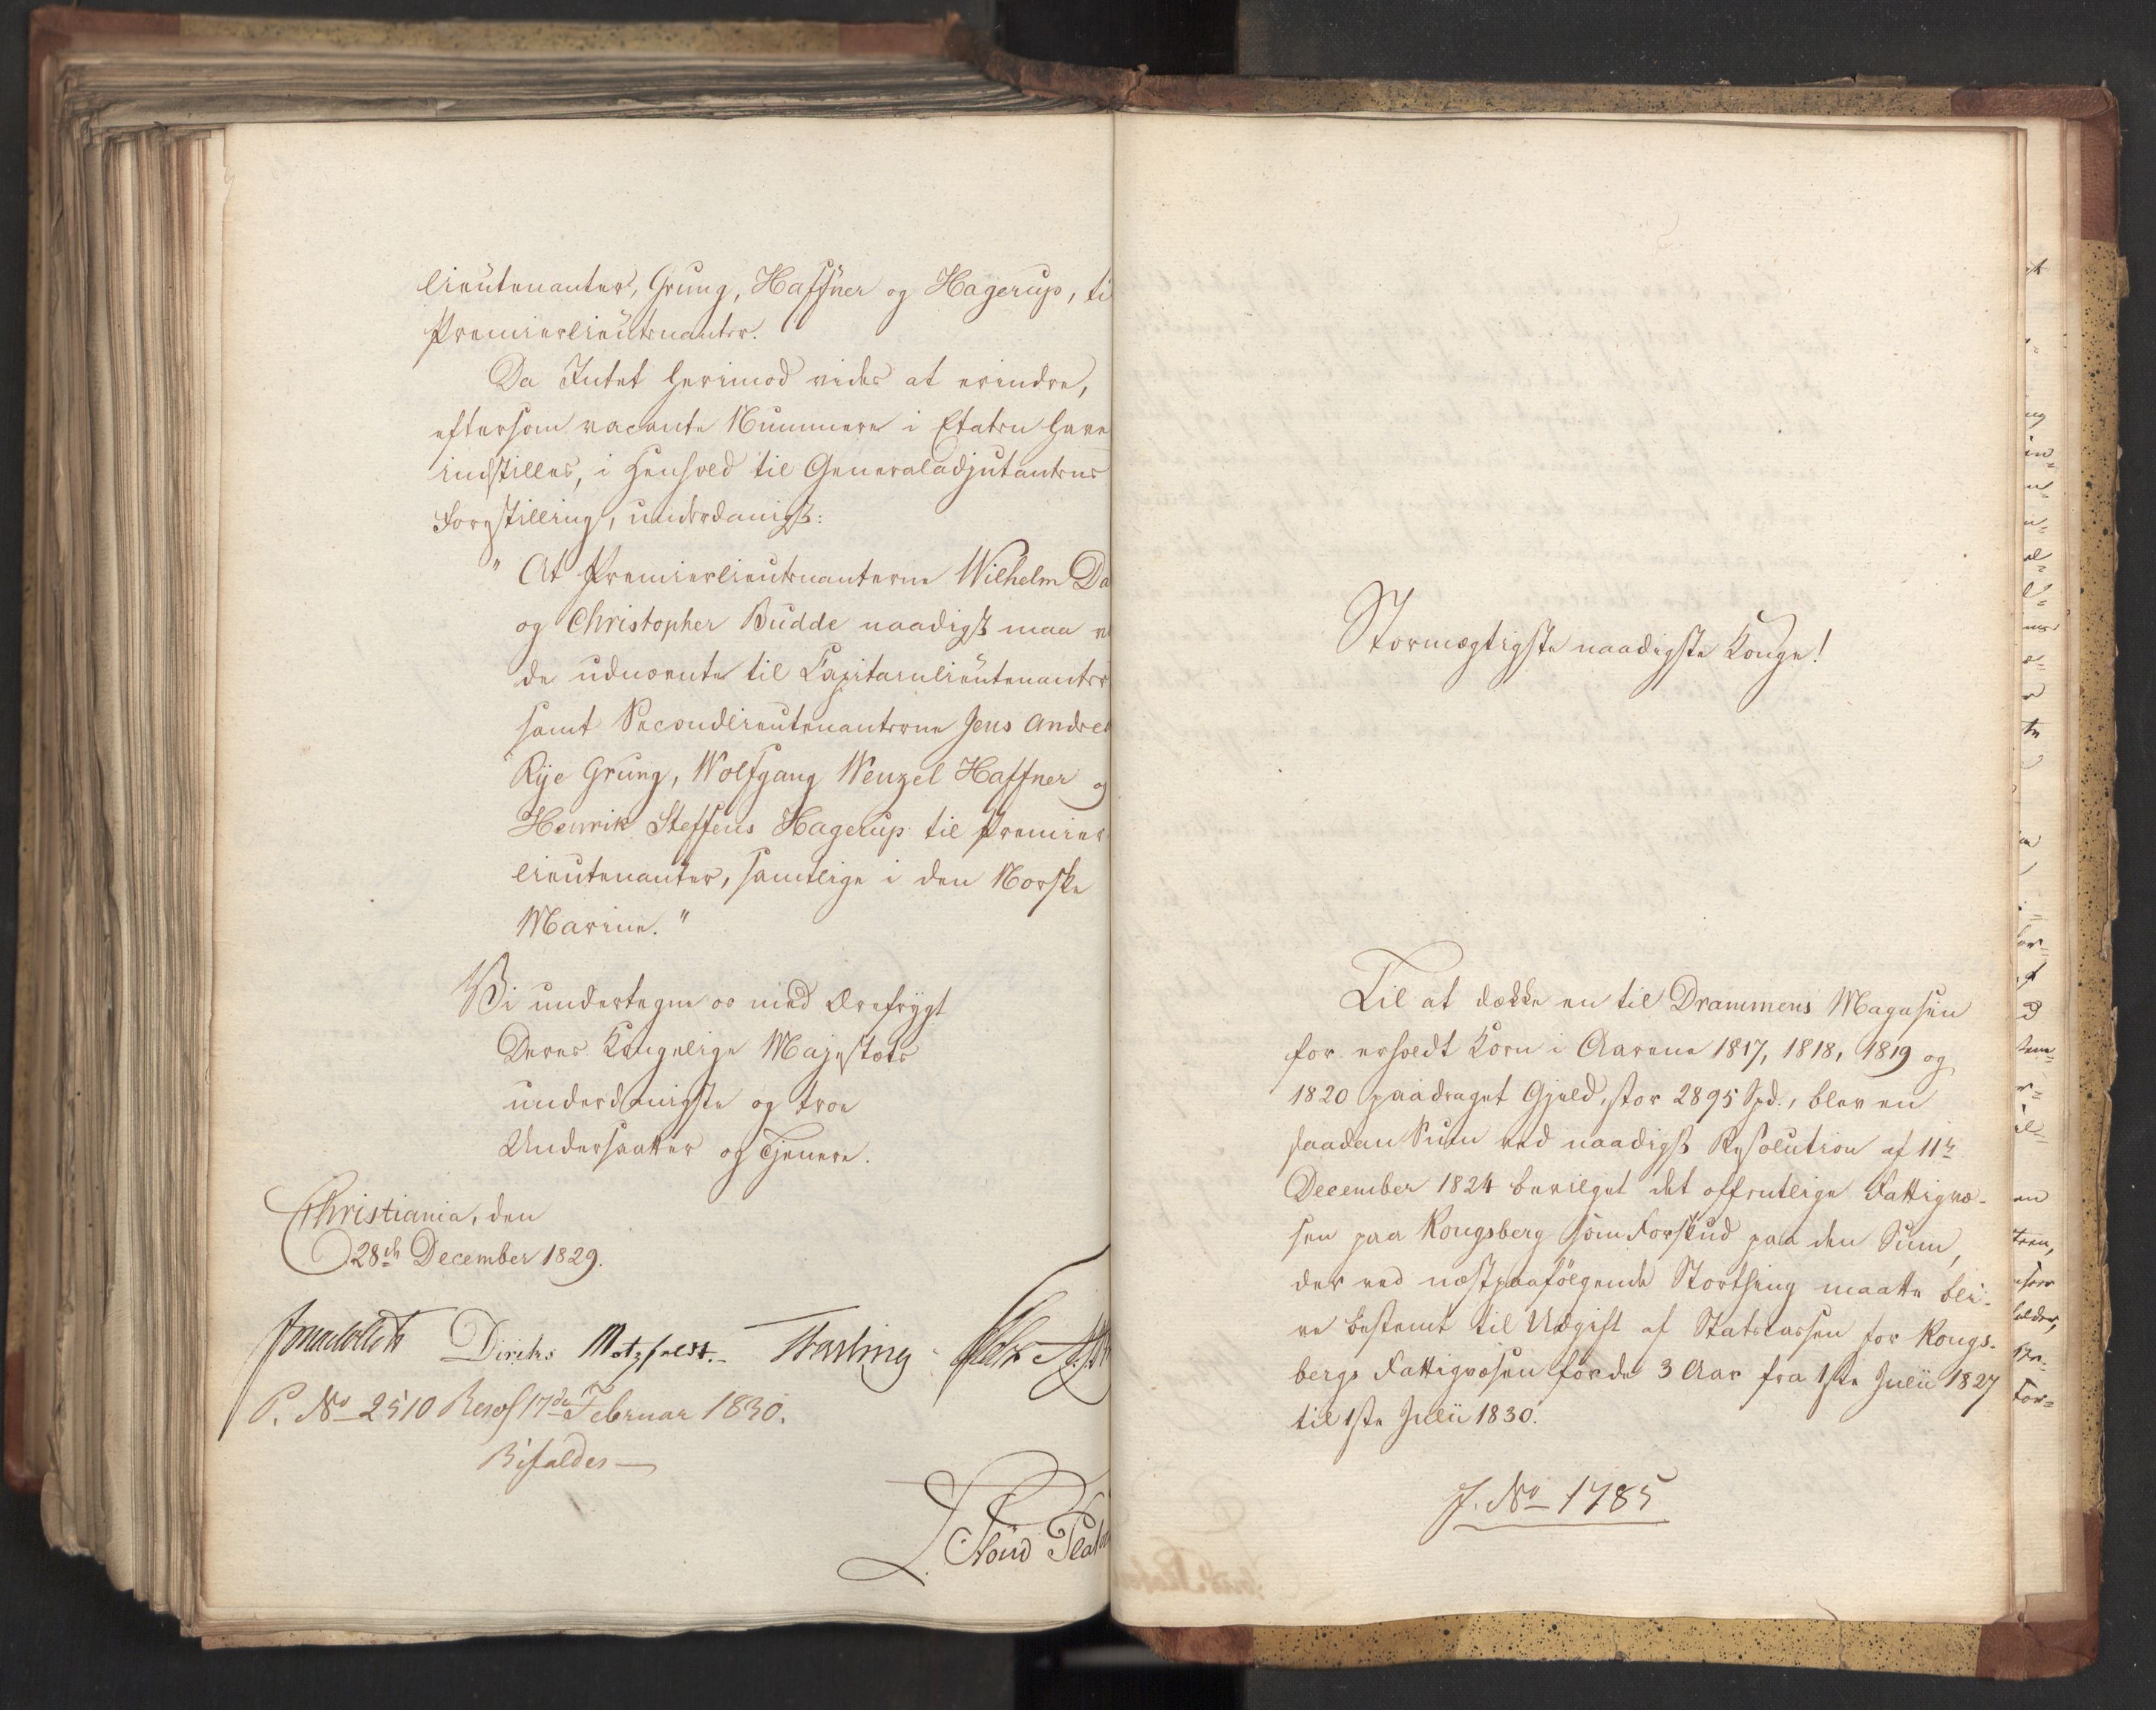 lieutenanter, Grung, Haffner og Hagerup, ti
Premierlieutenanter.
Da Intet herimod vides at erindre,
eftersom vacante Nummere i Etaten have
indstilles, i Henhold til Generaladjutantens
Forestilling, underdanigst:
" At Premierlieutenanterne Wilhelm Da
og Christopher Budde naadigst maa v
de udnævnte til Capitainlieutenanter
samt Secondlieutenanterne Jens Andre
Rÿe Grung, Wolfgang Wenzel Haffner og
Henrik Steffens Hagerup til Premier
lieutenanter, samtlige i den Norske
Marine."
Vi undertegne os med Ærefrygt
Deres Kongelige Majestæts
underdanigste og troe
Undersaatter og Tjenere.
Christiania, den
28de December 1829.
Diriks Motzfeldt.
P. No 2510 Resol 17de Februar 1830.
Bifaldes
Stormægtigste naadigste Konge!
Til at dække en til Drammens Magasin
for erholdt Korn i Aarene 1817, 1818, 1819 og
1820 paadraget Gjeld, stor 2895 Spd., blev en
saadan Sum ved naadigst Resolution af 11te
December 1824 bevilget det offentlige Fattigvæ-
sen paa Kongsberg som Forskud paa den Sum,
der ved næstpaafølgende Storthing maatte bli-
ve bestemt til Udgift af Statscassen for Kongs-
bergs Fattigvæsen for de 3 Aar fra 1ste Julii 1827
til 1ste Julii 1830.
J. No 1785